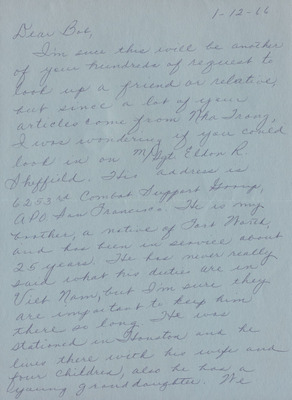 1-12-66
Dear Bob,
I'm sure this will be another
of your hundreds of request to
look up a friend or relative,
but since a lot of your
articles come from Nha Trang,
I was wondering if you could
look in on M/Sgt. Eldon R
Sheffield. His address is
6253rd Combat Support Group,
APO San Francisco. He is my
brother, a native of Fort Worth,
and has been in service about
25 years. He has never really
said what his duties are in
Viet Nam, but I'm sure they
are important to keep him
there so long. He was
stationed in Houston and he
lives there with his wife and
four children, also he has a
young granddaughter. We